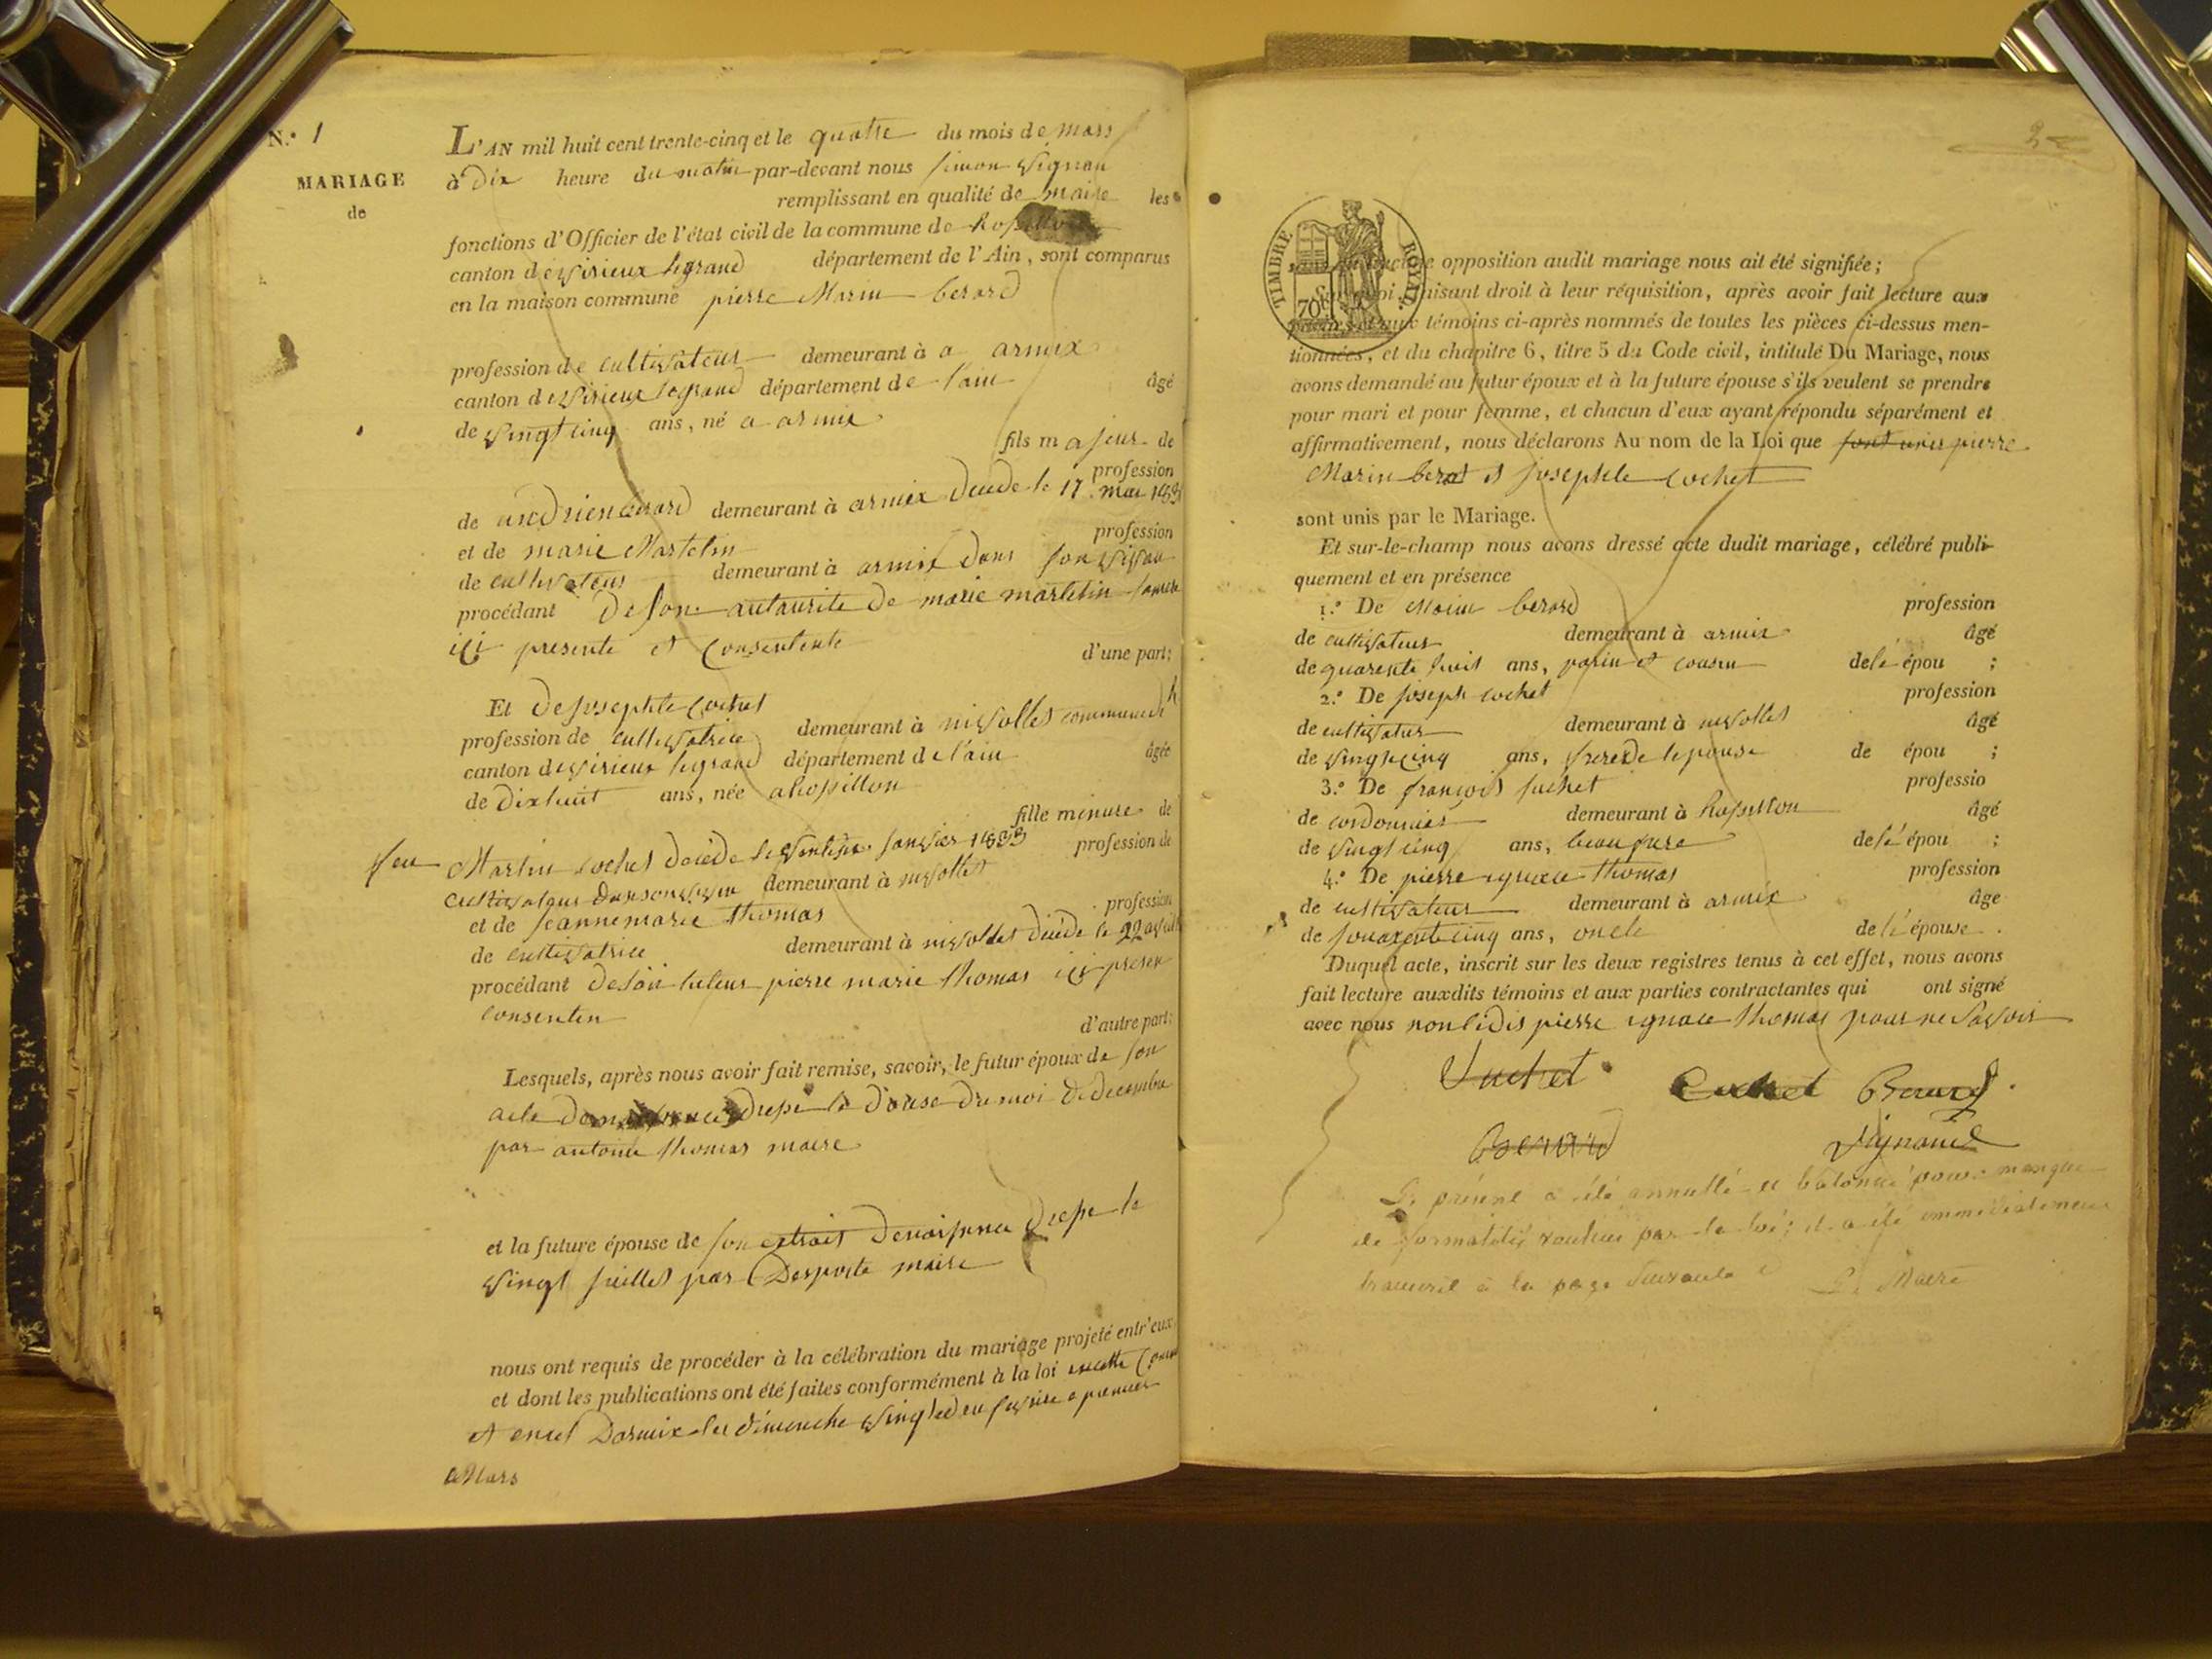 N.° 1
MARIAGE
de
L'AN mil huit cent trente-cinq et le quatre du mois de mars
à dix heure du matin par-devant nous simon
remplissant en qualité de maire les
fonctions d'Officier de l'état civil de la commune de
canton de virieux legrand département de l'Ain, sont comparus
en la maison commune pierre Marin berard
profession de cultivateur demeurant à a armix
canton de virieux legrand département de l'ain âgé
de vingt cinq ans, né a armix
fils majeur de
profession
de berard demeurant à armix décédé le 17 mai
et de marie Martelin profession
de cultivateur demeurant à armix dans son vivan
procédant de son autaurite de marie martelin
ici presente et consentente
d'une part;
Et de josephte cochet
profession de cultivatrice demeurant à nivolles commune
canton de virieux legrand département de l'ain âgée
de dixhuit ans, née a hossillon
fille minure de
feu Martin cochet décédé le janvier 1833 profession de
cultivateur demeurant à nivolles
et de jeanne marie thomas profession
de cultivatrice demeurant à nivolles décédé le 22
procédant de son tuteur pierre marie thomas ici presen
consenten
d'autre part;
Lesquels, après nous avoir fait remise, savoir, le futur époux de son
acte de drepé le douse du moi de decembre
par antoine thomas maire
et la future épouse de son extrait de naissance drepé le
vingt juillet par Desporte maire
nous ont requis de procéder à la célébration du mariage projeté entr'eux
et dont les publications ont été faites conformément à la loi
et Darmix les dimenche premier
de Mars
2
TIMBRE ROYAL
70
opposition audit mariage nous ait été signifiée;
faisant droit à leur réquisition, après avoir fait lecture aux
parties et aux témoins ci-après nommés de toutes les pièces ci-dessus men-
tionnées, et du chapitre 6, titre 5 du Code civil, intitulé Du Mariage, nous
avons demandé au futur époux et à la future épouse s'ils veulent se prendre
pour mari et pour femme, et chacun d'eux ayant répondu séparément et
affirmativement, nous déclarons Au nom de la Loi que sont unis pierre
Marin berard et josephte cochet
sont unis par le Mariage.
Et sur-le-champ nous avons dressé acte dudit mariage, célébré publi-
quement et en présence
1.° De Marin berard profession
de cultivateur demeurant à armix âgé
de quarente huit ans, parin et cousin de lé épou ;
2.° De joseph cochet profession
de cultivateur demeurant à nivolles âgé
de vingt cinq ans, frere de lepouse de épou ;
3.° De françois juchet professio
de cordonnier demeurant à hossillon âgé
de vingt cinq ans, beau frere de lé épou ;
4.° De pierre ignace thomas profession
de cultivateur demeurant à armix âge
de cinq ans, oncle de lé épouse .
Duquel acte, inscrit sur les deux registres tenus à cet effet, nous avons
fait lecture auxdits témoins et aux parties contractantes qui ont signé
avec nous non ledis pierre ignace thomas pour ne savoir
Juchet Cochet Berard
Berard
Le présent a été annullé et batonné pour manque
de formalités voulues par la loi; il a été immédiatement
transcrit à la page suivante Le Maire